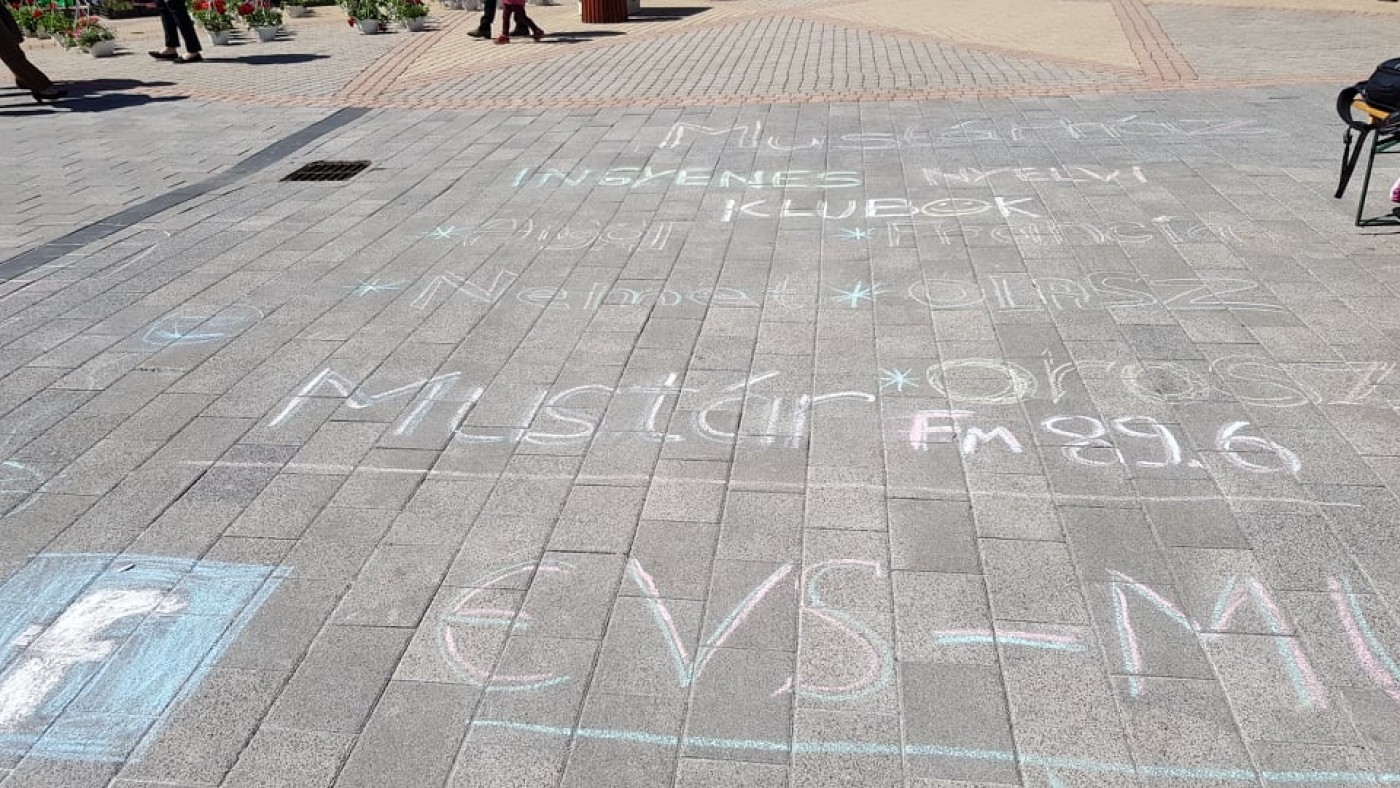 Mustárház
INGYENES NYELVI
KLUBOK
* Angol * Francia
* Német * OlASZ
* Orosz
Mustár Fm 89.6
f EVS-MU